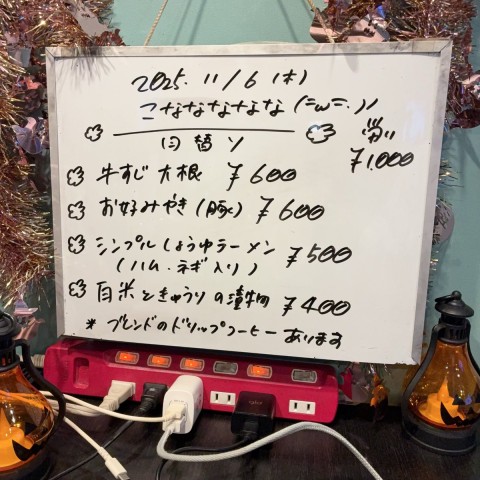 2025. 11/6 (木)
こななななな (=ω=.)ノ
日替り
労い
¥1,000
牛すじ大根 ¥600
お好みやき (豚) ¥600
シンプルしょうゆラーメン ¥500
(ハム・ネギ入り)
白米ときゅうりの漬物 ¥400
* ブレンドのドリップコーヒーあります